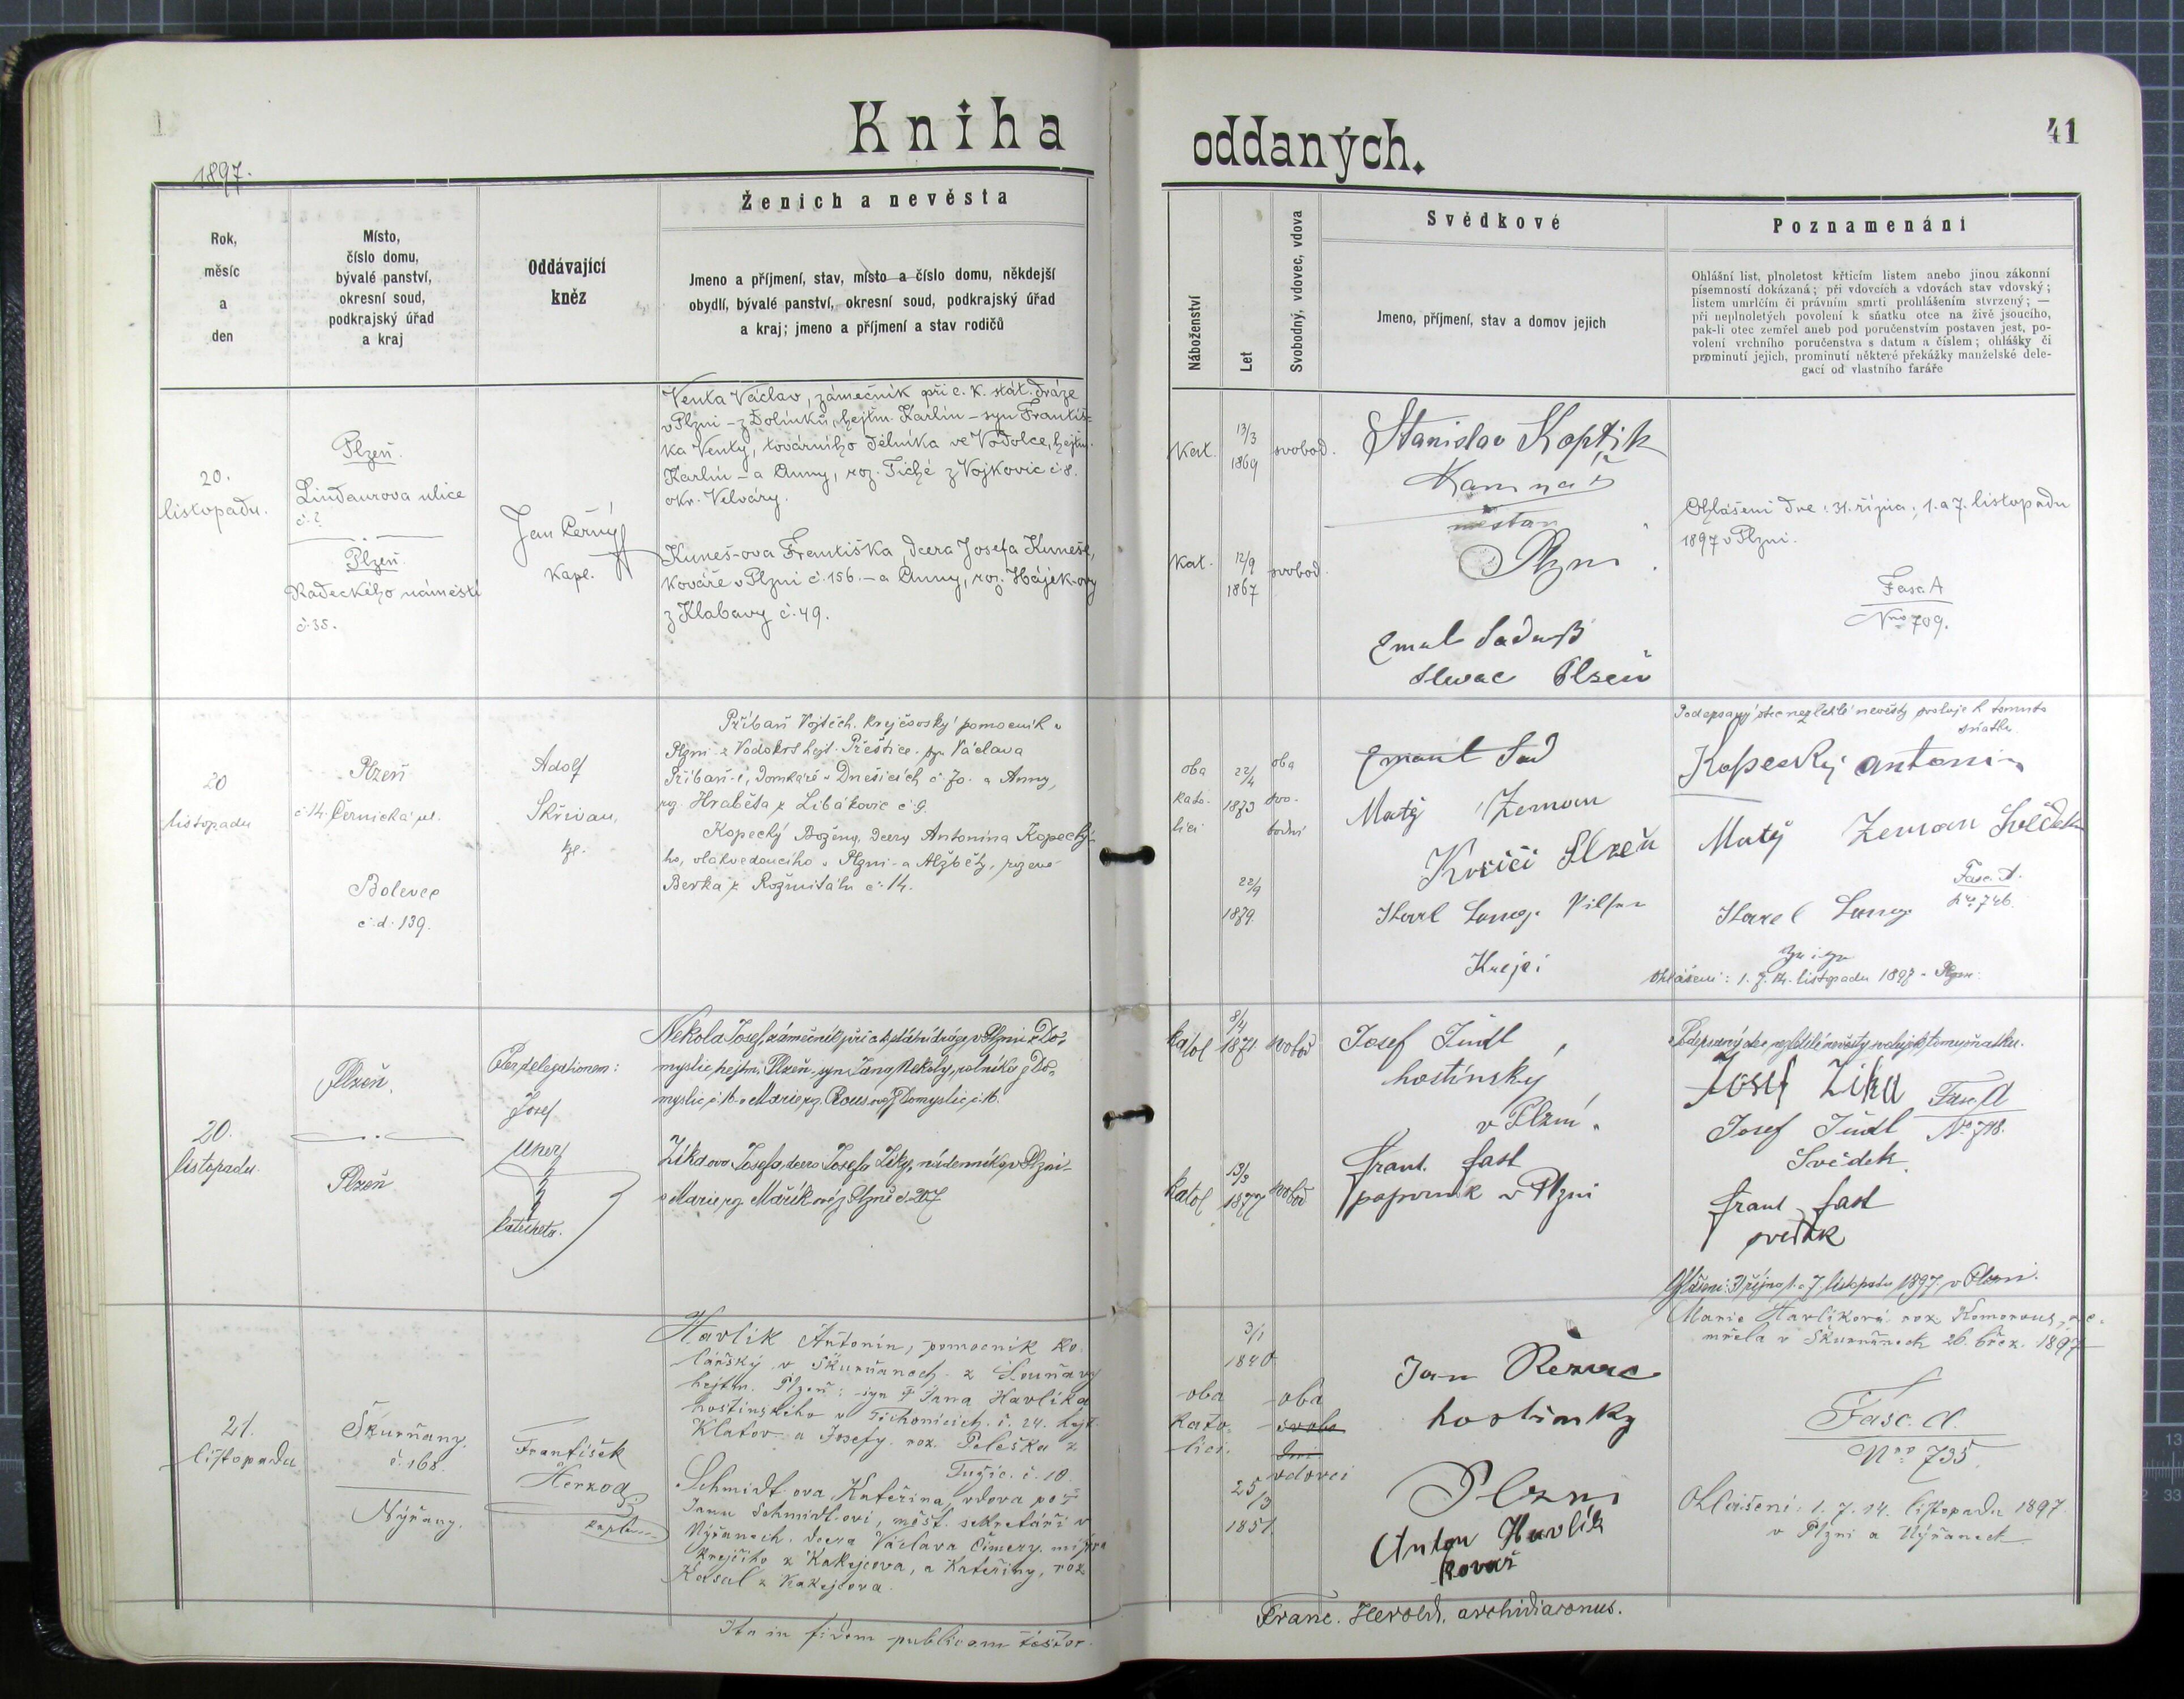 Kniha
oddaných.
41
1897.
Rok,
měsíc
a
den
Místo,
číslo domu,
bývalé panství,
okresní soud,
podkrajský úřad
a kraj
Oddávající
kněz
Ženich a nevěsta
Jmeno a příjmení, stav, místo a číslo domu, někdejší
obydlí, bývalé panství, okresní soud, podkrajský úřad
a kraj; jmeno a příjmení a stav rodičů
Náboženství
Let
Svobodný, vdovec, vdova
Svědkové
Jmeno, příjmení, stav a domov jejich
Poznamenání
Ohlášní list, plnoletost křticím listem anebo jinou zákonní
písemností dokázaná; při vdovcích a vdovách stav vdovský;
listem umrlčím či právním smrti prohlášením stvrzený; —
při neplnoletých povolení k sňatku otce na živě jsoucího,
pak-li otec zemřel aneb pod poručenstvím postaven jest, po-
volení vrchního poručenstva s datum a číslem; ohlášky či
prominutí jejich, prominutí některé překážky manželské dele-
gací od vlastního faráře
20.
listopadu.
Plzeň.
Lindaurova ulice
č. ?
Plzeň.
Radeckého náměstí
č. 35.
Jan Černý
Kapl.
Venta Václav, zámečník při c. k. stát. dráze
v Plzni - z Dolínků, hejtm. Karlín - syn Františ-
ka Venty, továrního dělníka ve Vodolce, hejtm.
Karlín - a Anny, roz. Tiché z Vojkovic č 8.
okr. Velváry.
Kuneš-ova Františka, dcera Josefa Kuneše,
kováře v Plzni č. 156. - a Anny, roz. Hájek-ovy
z Klabavy č. 49.
Kat.
13/3
1869
svobod.
Kat.
12/9
1867
svobod.
Stanislav Koptik
měšťan
Plzni
Emul
Plseň
Ohlášení dne: 31. října, 1. a 7. listopadu
1897 v Plzni.
Fasc. A
Nro 709.
20
listopadu
Plzeň
č 14. Černická ul.
Bolevec
č. d. 139.
Adolf
Skřivan,
kpl.
Příbaň Vojtěch, krejčovský pomocník v
Plzni - z Vodokrt hejt. Přeštice. syn Václava
Příbaň-ě, domkáře v Dnešicích č 70. a Anny,
roz. Hraběta z Libákovic č 9.
Kopecký Boženy, dcery Antonína Kopecký-
ho, vlakvedoucího v Plzni - a Alžběty, rozené
Berka z Rožmitálu č. 14.
oba
kato-
líci
22/4
1873
22/9
1879
oba
svo-
bodní
Matěj Zeman
Krejčí Plzeň
Karl Lang. Pilsen
Krejci
Podepsaný otec nezletilé nevěsty svoluje k tomuto
sňatku
Kopecký Antonín
Matěj Zeman Svědek
Fasc. A.
Nro 746.
Karel Lang
Ohlášení: 1. 7. 14. listopadu 1897 v Plzni
20.
listopadu.
Plzeň.
Plzeň
Per delegationem:
Josef
Uher
katecheta.
Nekola Josef, zámečník při c. k. státní dráze v Plzni z Do-
myslic, hejtm. Plzeň, syn Jana Nekoly, rolníka z Do-
myslic č. 16 a Marie, roz. Rous ové z Domyslic, č. 16.
Zíka ova Josefa, dcera Josefa Zíky, nádenníka v Plzni -
a Marie, roz. Mařík ové z Plzně č. 207
katol
8/4
1871
svobod
katol
13/3
1877
svobod
Josef Jindl,
hostinský
v Plzni.
Frant. Fast
v Plzni
Podepsaný otec nezletilé nevěsty svoluje k tomu sňatku.
Josef Zíka
Fasc. A
Nro 718.
Josef Jindl
Svědek
Frant. Fast
svědek
Ohlášeni: 31 října, 1. a 7. listopadu 1897. v Plzni.
21.
listopadu
Škurňany.
č. 168
Nýřany.
František
Herzog
kaplan
Havlík Antonín, pomocník ko-
lářský v Škurňanech - z
hejtm. Plzeň: syn † Jana Havlíka
hostinského v Tichonicích. č. 24. hejt.
Klatov a Josefy, roz. Peleška z
Tužic. č. 10.
Schmidt ova Kateřina, vdova po †
Janu Schmidt-ovi, měšť. sekretáři v
Nýřanech. dcera Václava Čimery, mistra
krejčího z Kakejcova, a Kateřiny, roz
Kasal z Kakejcova.
oba
kato-
líci.
3/1
1840
25/3
1851
oba
svobo
dní
vdovci
Jan
hostinský
Plzni
Anton Havlík
kovář
Marie Havlíková roz. Komorous, ze-
mřela v Škurňanech 26. břez. 1897
Fasc. A.
Nro 735.
Ohlášeni: 1. 7. 14. listopadu 1897.
v Plzni a Nýřanech
Ita in fidem publicam testor.
Franc. Herold, archidiaconus.